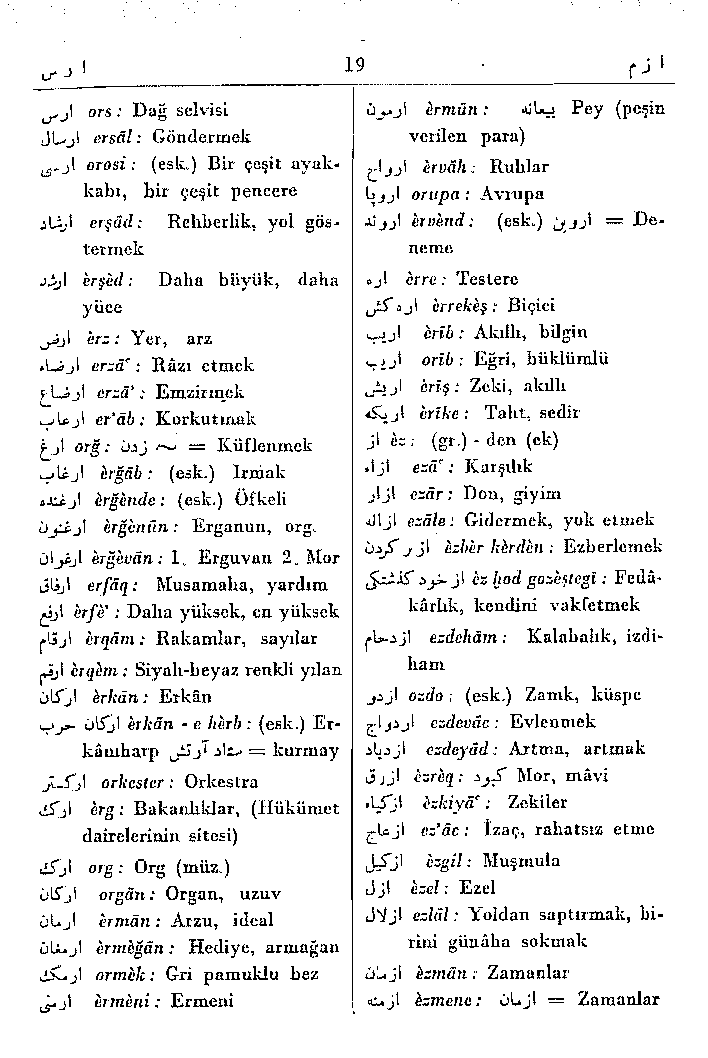 ارس 19 ازم
ارس ors : Dağ selvisi
ارسال ersāl : Göndermek
ارسی orosi : (esk.) Bir çeşit ayak-
kabı, bir çeşit pencere
ارشاد erşād : Rehberlik, yol gös-
termek
ارشد èrşèd : Daha büyük, daha
yüce
ارض èrz : Yer, arz
ارضاء erzāʿ : Râzı etmek
ارضاع erzā' : Emzirmek
ارعاب er'āb : Korkutmak
ارغ orğ : ~ زدن = Küflenmek
ارغاب èrğāb : (esk.) Irmak
ارغنده èrğènde : (esk.) Öfkeli
ارغنون èrğènūn : Erganun, org.
ارغوان èrğèvān : 1. Erguvan 2. Mor
ارفاق erfāq : Musamaha, yardım
ارفع èrfè' : Daha yüksek, en yüksek
ارقام èrqām : Rakamlar, sayılar
ارقم èrqèm : Siyah-beyaz renkli yılan
ارکان èrkān : Erkân
ارکان حرب èrkān - e hèrb : (esk.) Er-
kâmharp ستاد ارتش = kurmay
ارکستر orkester : Orkestra
ارك èrg : Bakanlıklar, (Hükümet
dairelerinin sitesi)
ارگ org : Org (müz.)
ارگان orgān : Organ, uzuv
ارمان èrmān : Arzu, ideal
ارمغان èrmèğān : Hediye, armağan
ارمك ormèk : Gri pamuklu bez
ارمنی èrmèni : Ermeni
ارمون èrmūn : بیعانه Pey (peşin
verilen para)
ارواح èrvāh : Ruhlar
اروپا orupa : Avrupa
اروند èrvènd : (esk.) اروین = De-
neme
اره èrre : Testere
اره کش èrrekèş : Biçici
اریب èrīb : Akıllı, bilgin
اریب orīb : Eğri, büklümlü
اریش èrīş : Zeki, akıllı
اریکه èrīke : Taht, sedir
از èz : (gr.) - den (ek)
ازاء ezāʿ : Karşılık
ازار ezār : Don, giyim
ازاله ezāle : Gidermek, yok etmek
ازبر کردن èzbèr kèrdèn : Ezberlemek
از خود گذشتگی èz ḫod gozèştegī : Fedâ-
kârlık, kendini vakfetmek
ازدحام ezdehām : Kalabalık, izdi-
ham
ازدو ozdo : (esk.) Zamk, küspe
ازدواج ezdevāc : Evlenmek
ازدیاد ezdeyād : Artma, artmak
ازرق èzrèq : کبود Mor, mâvi
ازکیاء èzkiyāʿ : Zekiler
ازعاج ez'āc : İzaç, rahatsız etme
ازگیل èzgil : Muşmula
ازل èzel : Ezel
ازلال ezlāl : Yoldan saptırmak, bi-
rini günâha sokmak
ازمان èzmān : Zamanlar
ازمنه èzmene : ازمان = Zamanlar